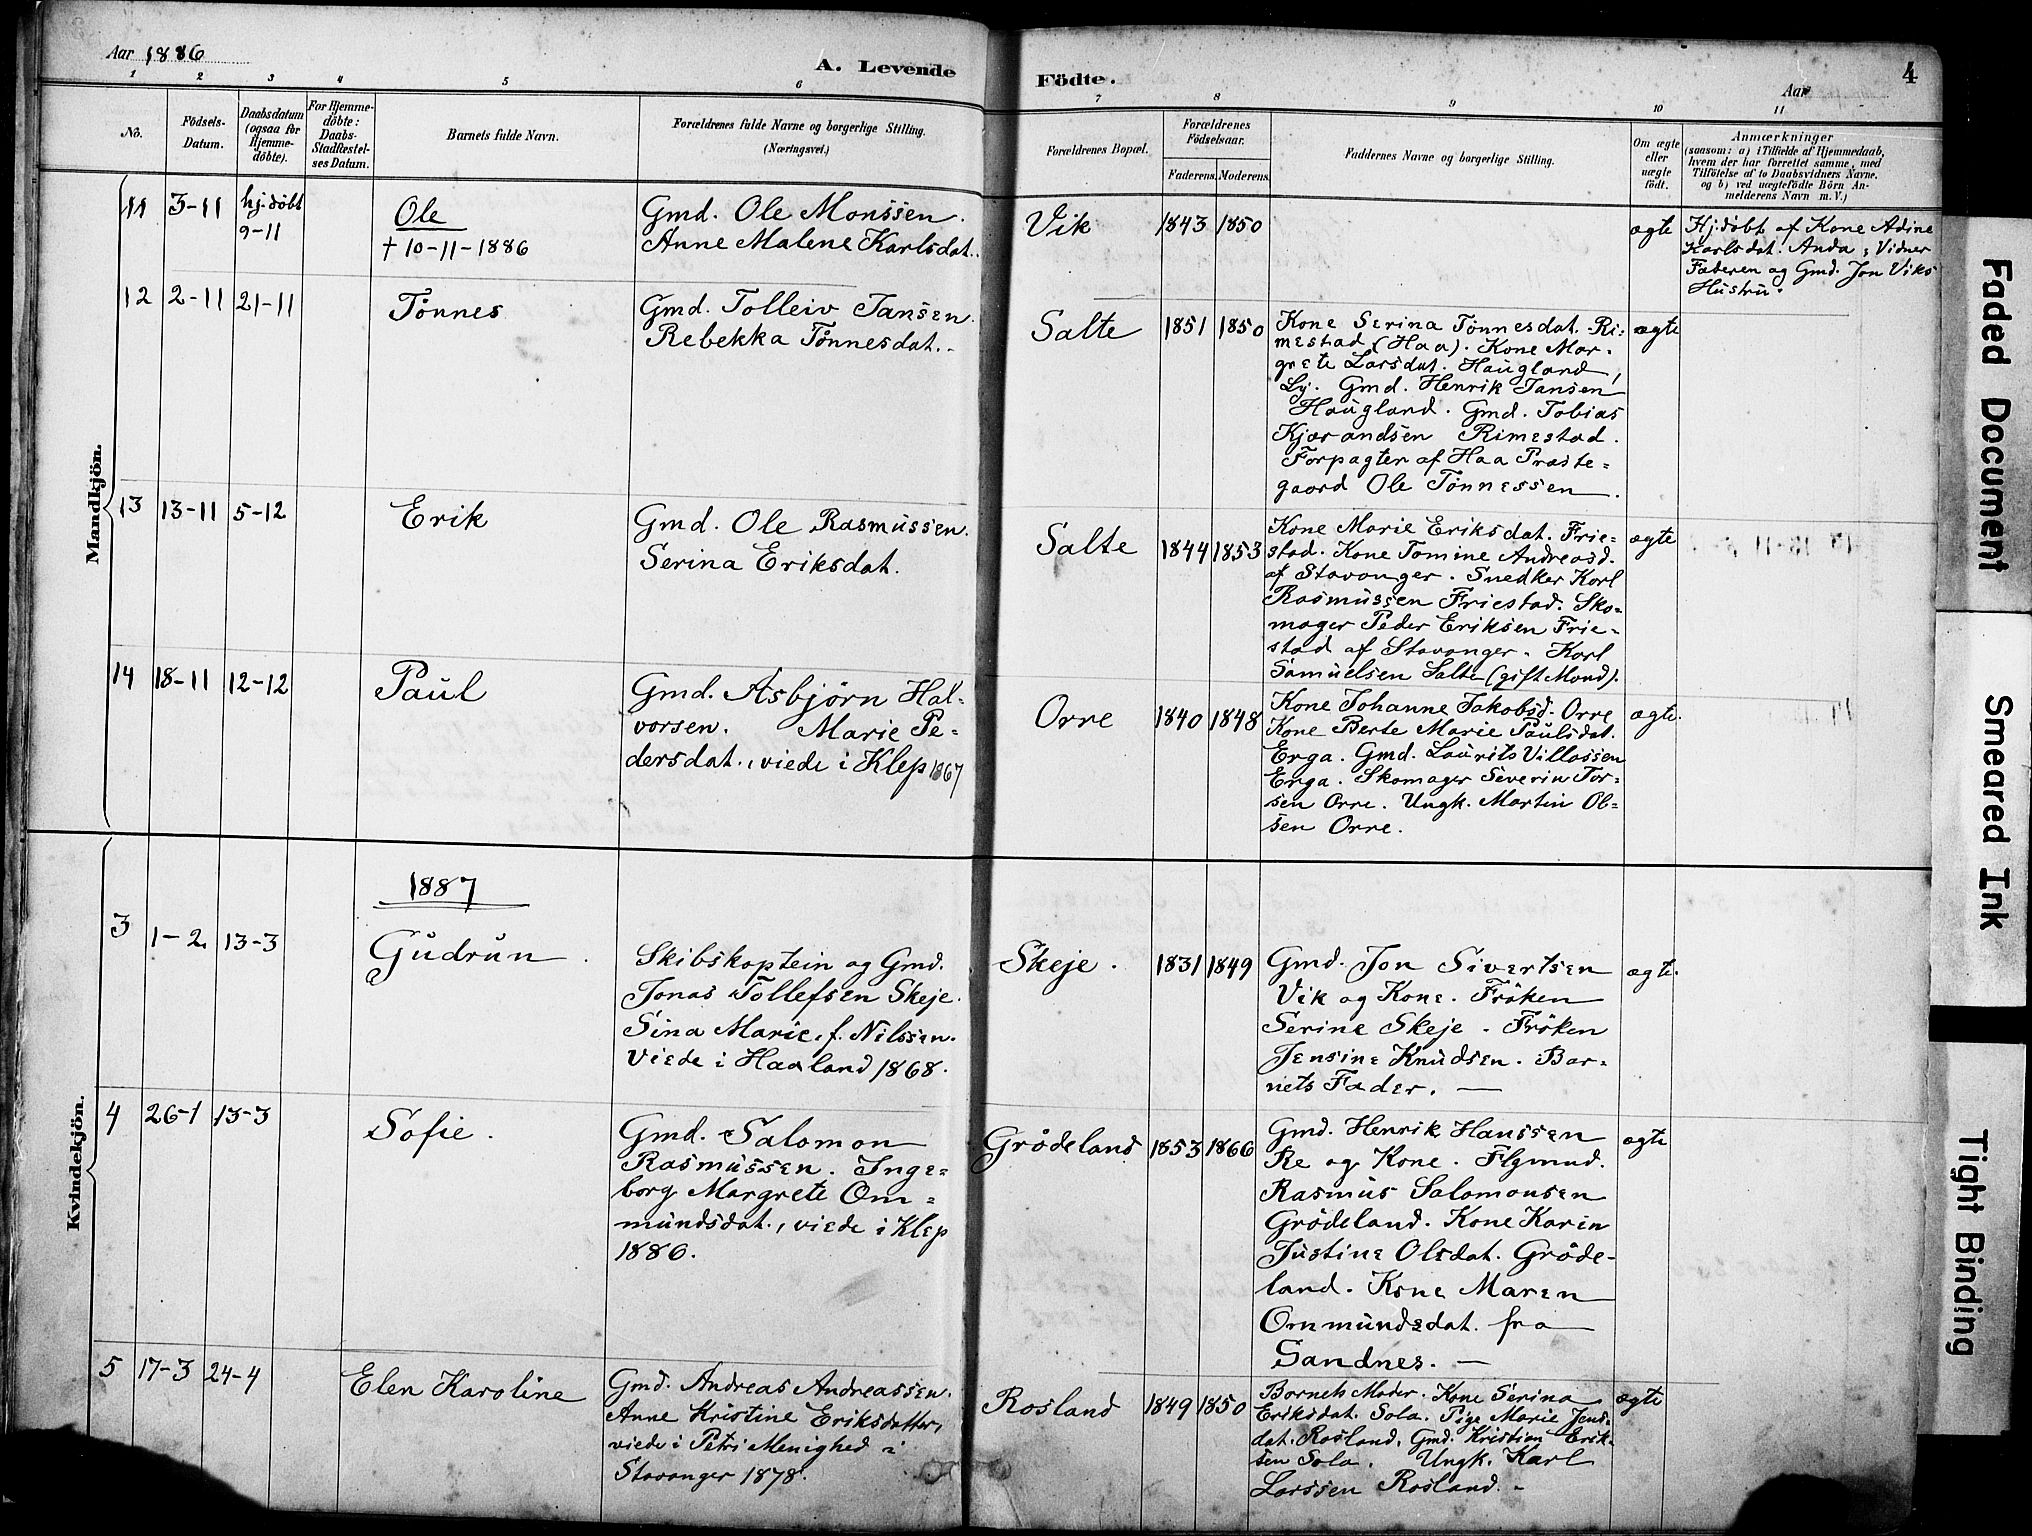 Aar 1886
A. Levende
Födte.
Aar
4
1 2 3 4 5 6 7 8 9 10 11
Nö.
Födsels-
Datum.
Daabsdatum
(ogsaa for
Hjemme-
döbte).
For Hjemme-
döbte:
Daabs-
Stadfæstel-
ses Datum.
Barnets fulde Navn.
Forældrenes fulde Navne og borgerlige Stilling.
(Næringsvei.)
Forældrenes Bopæl.
Forældrenes
Födselsaar.
Faderens. Moderens.
Faddernes Navne og borgerlige Stilling.
Om ægte
eller
uægte
födt.
Anmærkninger
(saasom: a) i Tilfælde af Hjemmedaab,
hvem der har forrettet samme, med
Tilföielse af to Daabsvidners Navne,
og b) ved uægtefödte Börn An-
melderens Navn m. V.)
Mandkjön.
11 3-11 hj. döbt
9-11
Ole
† 10-11-1886
Gmd. Ole Monssen.
Anne Malene Karlsdat.
Vik 1843 1850
ægte
Hj. döbt af Kone Adine
Karlsdat. Anda, Vidner
Faderen og Gmd. Jon Viks
Hustru.
12 2-11 21-11
Tönnes
Gmd. Tolleiv Jansen.
Rebekka Tönnesdat.
Salte 1851 1850
Kone Serina Tönnesdat. Ri-
mestad (Haa). Kone Mar-
grete Larsdat. Haugland,
Ly. Gmd. Henrik Jansen
Haugland. Gmd. Tobias
Kjærandsen Rimestad.
Forpagter af Haa Præste-
gaard Ole Tönnessen.
ægte
13 13-11 5-12
Erik
Gmd. Ole Rasmussen.
Serina Eriksdat.
Salte 1844 1853
Kone Marie Eriksdat. Frie-
stad. Kone Tomine Andreasd.
af Stavanger. Snedker Karl
Rasmussen Friestad. Sko-
mager Peder Eriksen Frie-
stad af Stavanger. Karl
Samuelsen Salte (gift Mand).
ægte
14 18-11 12-12
Paul
Gmd. Asbjörn Hal-
vorsen. Marie Pe-
dersdat., viede i Klep 1867
Orre 1840 1848
Kone Johanne Jakobsd. Orre
Kone Berte Marie Paulsdat.
Erga. Gmd. Laurits Villassen
Erga. Skomager Severin Tor-
sen Orre. Ungk. Martin Ol-
sen Orre.
ægte.
Kvindekjön.
1887
3 1-2 13-3
Gudrun.
Skibskaptein og Gmd.
Jonas Tollefsen Skeje.
Sina Marie, f. Nilssen.
Viede i Haaland 1868.
Skeje. 1831 1849
Gmd. Jon Sivertsen
Vik og Kone. Fröken
Serine Skeje. Fröken
Jensine Knudsen. Bar-
nets Fader.
ægte.
4 26-1 13-3
Sofie.
Gmd. Salomon
Rasmussen. Inge-
borg Margrete Om-
mundsdat., viede i Klep
1886.
Grödeland 1853 1866
Gmd. Henrik Hanssen
Re og Kone. Flgmnd.
Rasmus Salomonsen
Grödeland. Kone Karin
Justine Olsdat. Gröde-
land. Kone Maren
Ommundsdat. fra
Sandnes.
ægte
5 17-3 24-4
Elen Karoline
Gmd. Andreas Andreassen.
Anne Kristine Eriksdatter,
viede i Petri Menighed i
Stavanger 1878.
Rosland 1849 1850
Barnets Moder. Kone Serina
Eriksdat. Sola. Pige Marie Jens-
dat. Rosland. Gmd. Kristian Erik-
sen Sola. Ungk. Karl
Larssen Rosland.
ægte
Faded Document
Smeared Ink
Tight Binding